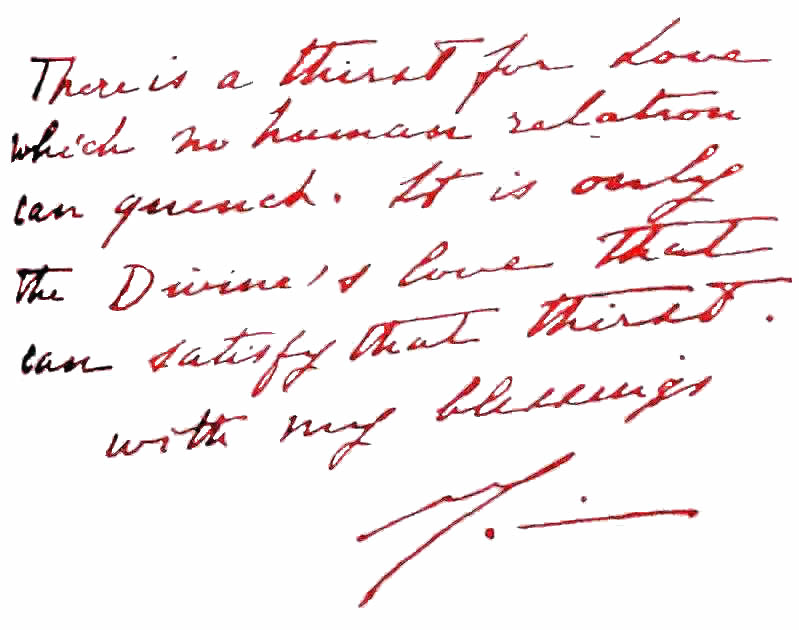 There is a thirst for Love
which no human relation
can quench. It is only
the Divine's love that
can satisfy that thirst.
with my blessings